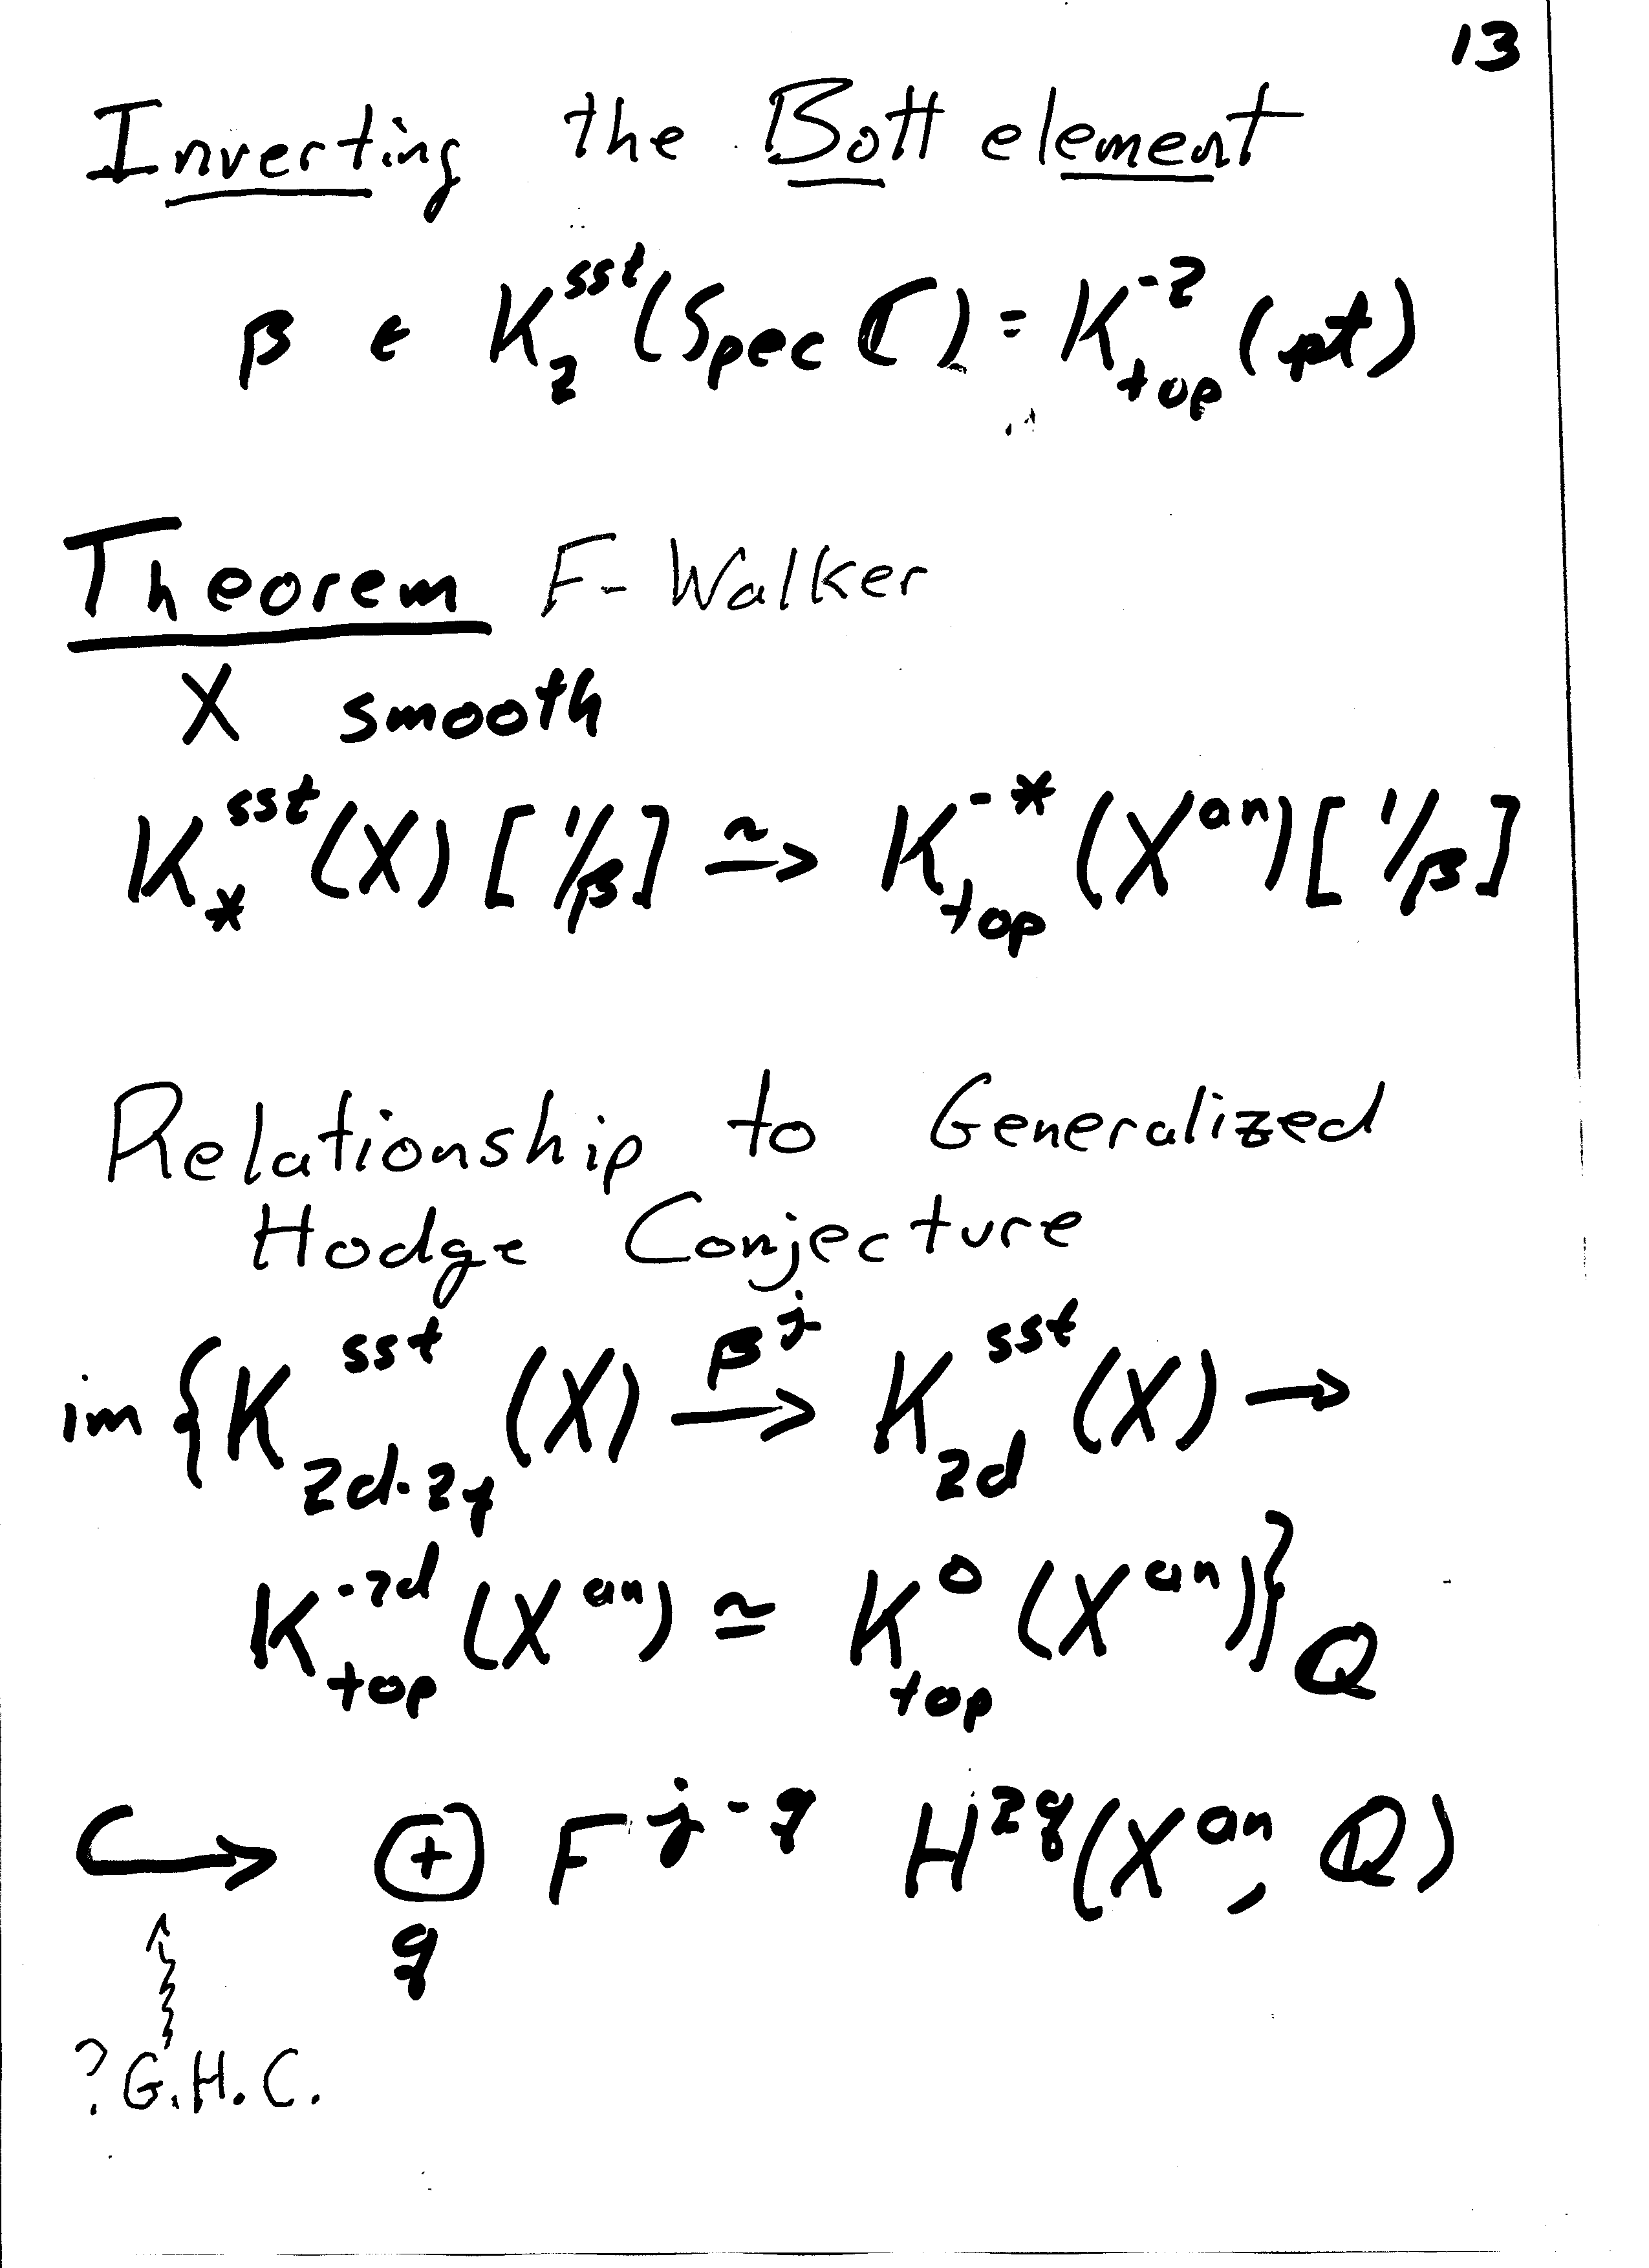 13
Inverting the Bott element
β ∈ K₂^{sst}(Spec ℂ) = K_{top}^{-2}(pt)
Theorem F-Walker
X smooth
K_*^{sst}(X)[1/β] ≃> K_{top}^{-*}(X^{an})[1/β]
Relationship to Generalized
Hodge Conjecture
im {K_{2d-2j}^{sst}(X) —β^j→ K_{2d}^{sst}(X) →
K_{top}^{-2d}(X^{an}) ≃ K_{top}^{0}(X^{an})}_ℚ
↪ ⊕_q F^{j-q} H^{2q}(X^{an}, ℚ)
? G.H.C.